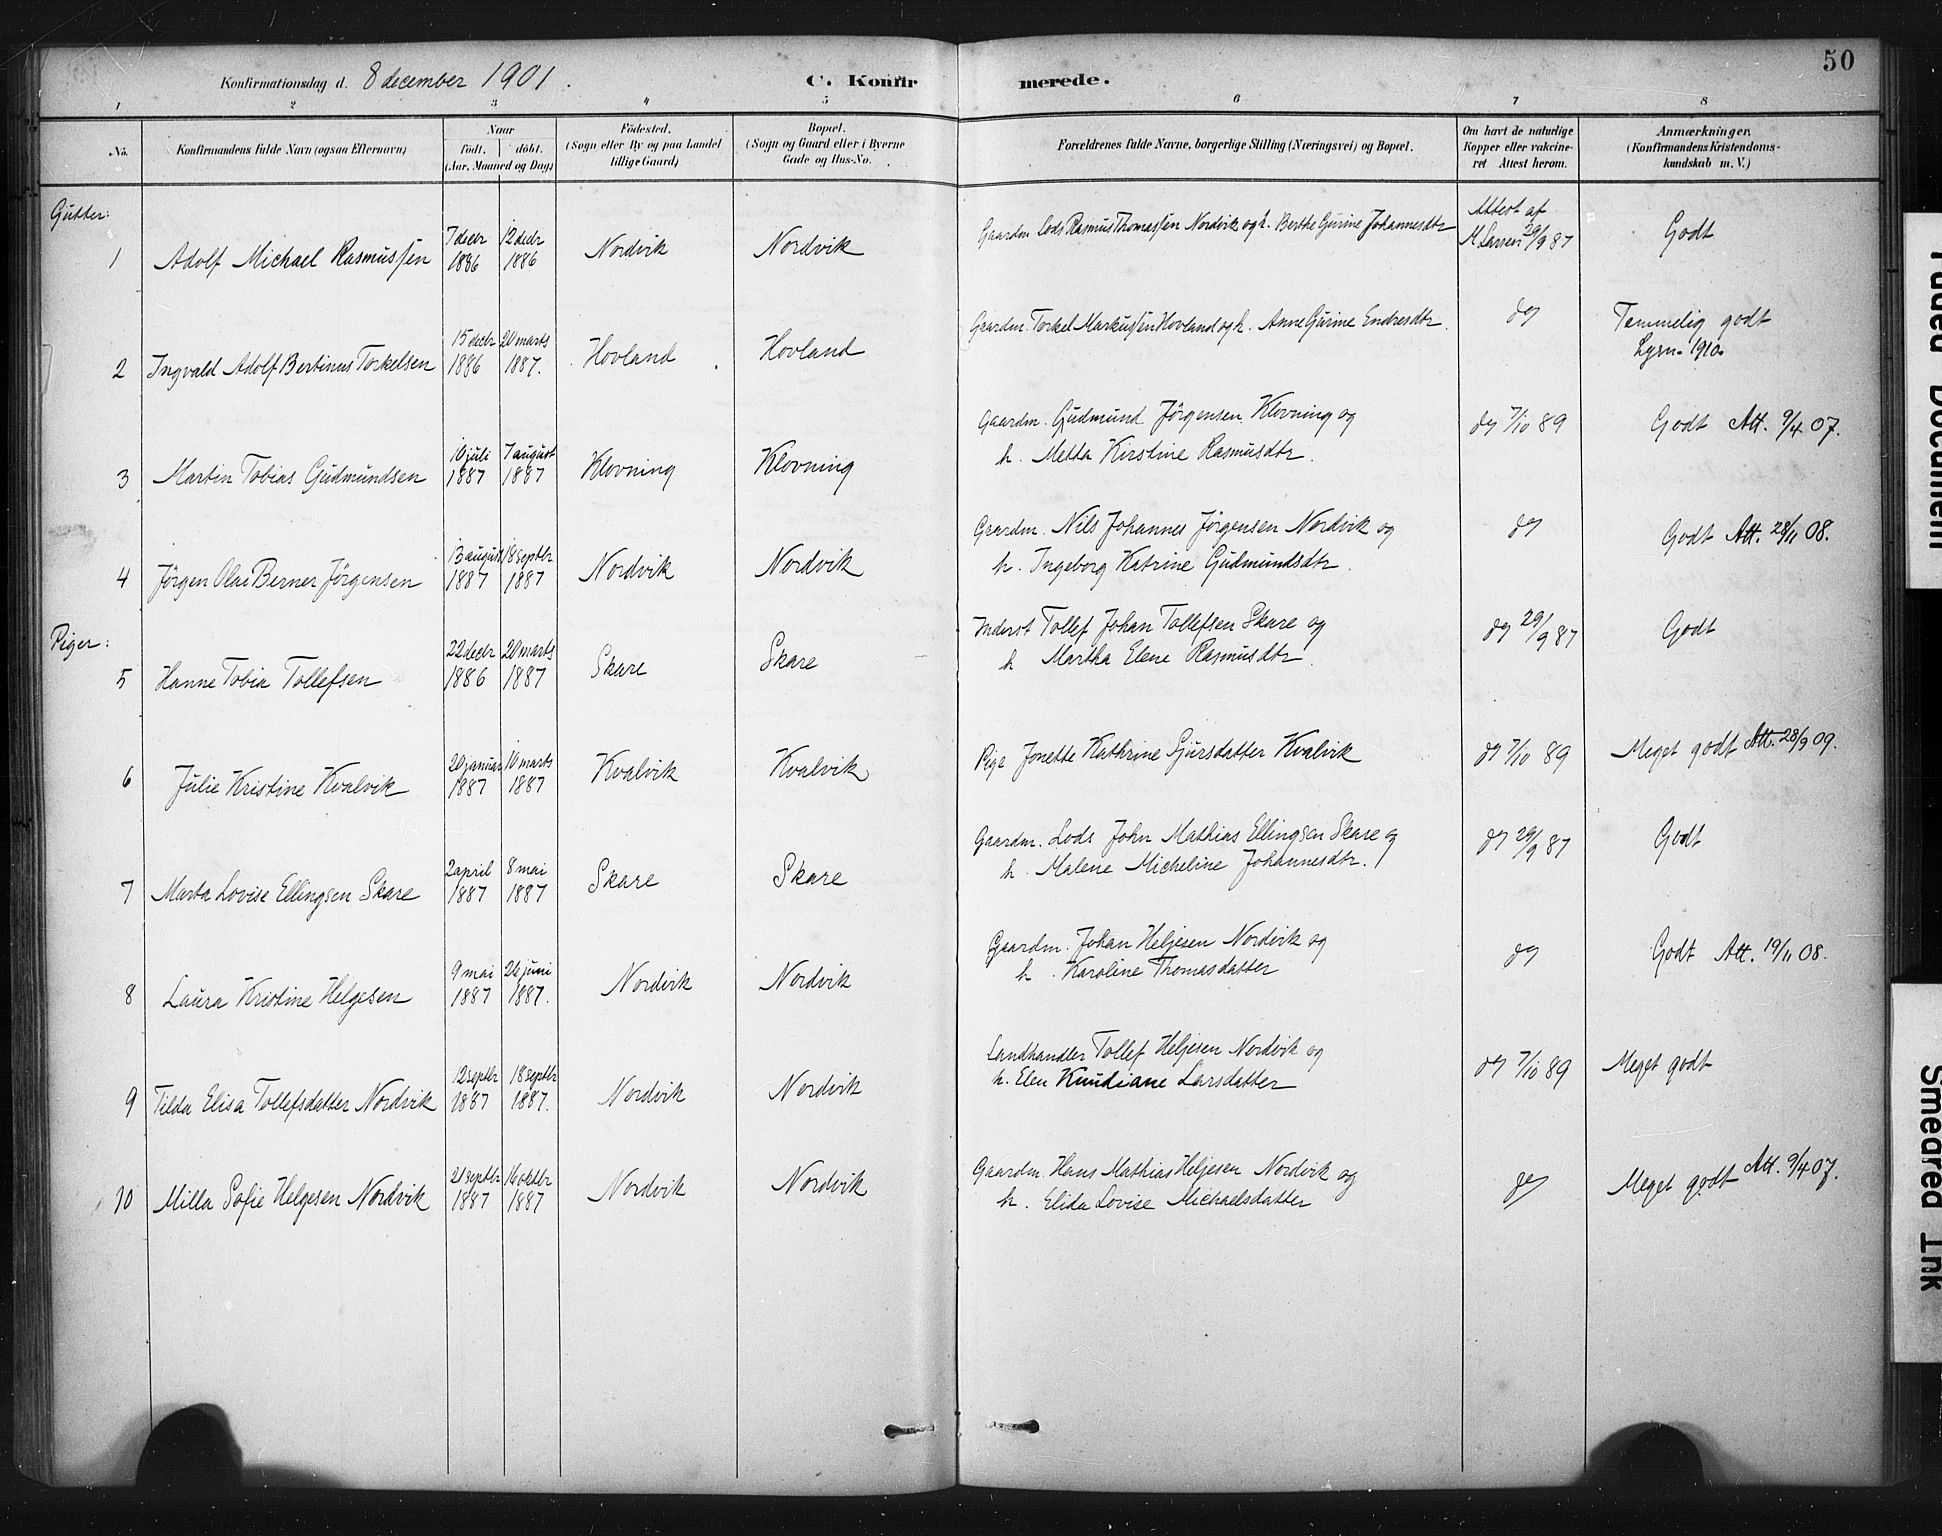 50
Konfirmationsdag d. 8 december 1901.
C. Konfirmerede.
1 2 3 4 5 6 7 8
No.
Konfirmandens fulde Navn (ogsaa Efternavn)
Naar
født. døbt.
(Aar, Maaned og Dag)
Fødested.
(Sogn eller By og paa Landet
tillige Gaard)
Bopæl.
(Sogn og Gaard eller i Byerne
Gade og Hus-No.
Forældrenes fulde Navne, borgerlige Stilling (Næringsvei) og Bopæl.
Om havt de naturlige
Kopper eller vakcine-
ret Attest herom.
Anmærkninger.
(Konfirmandens Kristendoms-
kundskab m. V.)
Gutter:
1 Adolf Michael Rasmussen 7 decbr 1886 12 decbr 1886 Nordvik Nordvik Gaardm. Lods Rasmus Thomassen Nordvik og h. Berthe Gurine Johannesdtr Attest af M Larsen 29/9 87 Godt
2 Ingvald Adolf Bertinus Torkelsen 15 decbr 1886 20 marts 1887. Hovland Hovland Gaardm. Torkel Markussen Hovland og h. Anne Gurine Endresdtr. do Temmelig godt
Lysn. 1910.
3 Martin Tobias Gudmundsen 10 juli 1887 7 august 1887 Klovning Klovning Gaardm. Gudmund Jörgensen Klovning og
h. Metta Kirstine Rasmusdtr. do 7/10 89 Godt Att. 9/4 07.
4 Jörgen Olai Berner Jörgensen 13 august 1887 18 septbr 1887 Nordvik Nordvik Gaardm. Nils Johannes Jörgensen Nordvik og
h. Ingeborg Katrine Gudmundsdtr. do Godt Att. 28/11 08.
Piger:
5 Hanne Tobia Tollefsen 22 decbr 1886 20 marts 1887 Skare Skare Inderst Tollef Johan Tollefsen Skare og
h Martha Elene Rasmusdtr. do 29/9 87 Godt
6 Julie Kristine Kvalvik 20 januar 1887 10 marts 1887 Kvalvik Kvalvik Pige Jonette Kathrine Sjursdatter Kvalvik do 7/10 89 Meget godt Att. 28/9 09.
7 Marta Lovise Ellingsen Skare 2 april 1887 8 mai 1887 Skare Skare Gaardm. Lods John Mathias Ellingsen Skare og
h. Malene Micheline Johannesdtr. do 29/9 87 Godt
8 Laura Kristine Helgesen 9 mai 1887 26 juni 1887. Nordvik Nordvik Gaardm. Johan Heljesen Nordvik og
h. Karoline Thomasdatter do Godt Att. 19/11 08.
9 Tilda Elisa Tollefsdatter Nordvik 12 septbr 1887 18 septbr 1887. Nordvik Nordvik Landhandler Tollef Heljesen Nordvik og
h. Elen Knudiane Larsdatter do 7/10 89 Meget godt
10 Milla Sofie Helgesen Nordvik 21 septbr 1887 16 oktbr 1887 Nordvik Nordvik Gaardm. Hans Mathias Heljesen Nordvik og
h. Elida Lovise Michaelsdatter do Meget godt Att. 9/4 07.
Faded Document
Smeared Ink